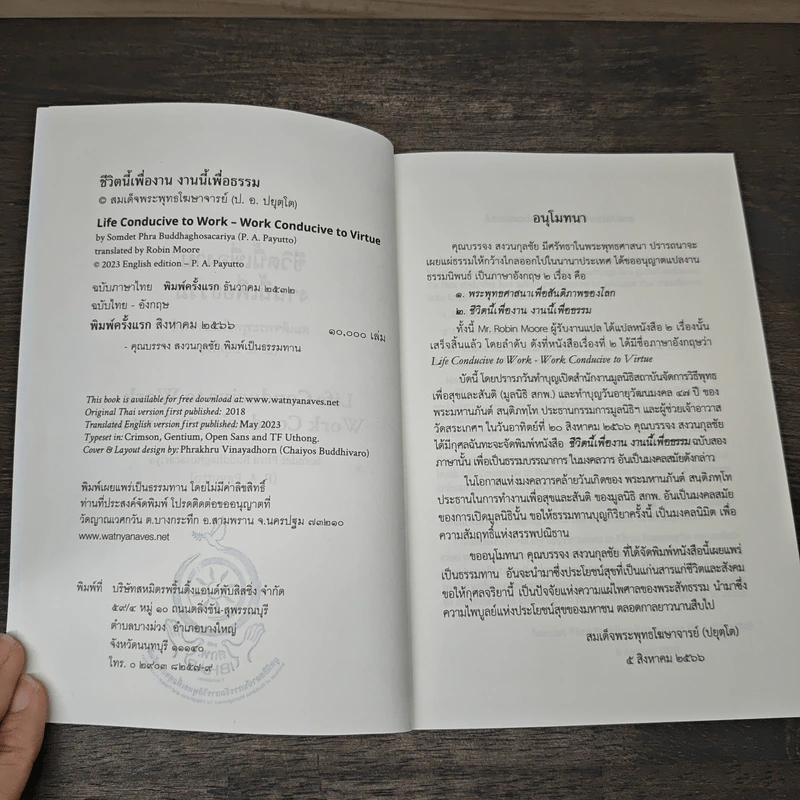 ชีวิตนี้เพื่องาน งานนี้เพื่อธรรม
© สมเด็จพระพุทธโฆษาจารย์ (ป. อ. ปยุตฺโต)
Life Conducive to Work – Work Conducive to Virtue
by Somdet Phra Buddhaghosacariya (P. A. Payutto)
translated by Robin Moore
© 2023 English edition – P. A. Payutto
ฉบับภาษาไทย พิมพ์ครั้งแรก ธันวาคม ๒๕๓๒
ฉบับไทย - อังกฤษ
พิมพ์ครั้งแรก สิงหาคม ๒๕๖๖ ๑๐,๐๐๐ เล่ม
- คุณบรรจง สงวนกุลชัย พิมพ์เป็นธรรมทาน
This book is available for free download at: www.watnyanaves.net
Original Thai version first published: 2018
Translated English version first published: May 2023
Typeset in: Crimson, Gentium, Open Sans and TF Uthong.
Cover & Layout design by: Phrakhru Vinayadhorn (Chaiyos Buddhivaro)
พิมพ์เผยแพร่เป็นธรรมทาน โดยไม่มีค่าลิขสิทธิ์
ท่านที่ประสงค์จัดพิมพ์ โปรดติดต่อขออนุญาตที่
วัดญาณเวศกวัน ต.บางกระทึก อ.สามพราน จ.นครปฐม ๗๓๒๑๐
www.watnyanaves.net
พิมพ์ที่ บริษัทสหมิตรพริ้นติ้งแอนด์พับลิสซิ่ง จำกัด
๕๙/๔ หมู่ ๑๐ ถนนตลิ่งชัน-สุพรรณบุรี
ตำบลบางม่วง อำเภอบางใหญ่
จังหวัดนนทบุรี ๑๑๑๔๐
โทร. ๐ ๒๙๐๓ ๘๒๕๗-๙
อนุโมทนา
คุณบรรจง สงวนกุลชัย มีศรัทธาในพระพุทธศาสนา ปรารถนาจะ
เผยแผ่ธรรมให้กว้างไกลออกไปในนานาประเทศ ได้ขออนุญาตแปลงาน
ธรรมนิพนธ์ เป็นภาษาอังกฤษ ๒ เรื่อง คือ
๑. พระพุทธศาสนาเพื่อสันติภาพของโลก
๒. ชีวิตนี้เพื่องาน งานนี้เพื่อธรรม
ทั้งนี้ Mr. Robin Moore ผู้รับงานแปล ได้แปลหนังสือ ๒ เรื่องนั้น
เสร็จสิ้นแล้ว โดยลำดับ ดังที่หนังสือเรื่องที่ ๒ ได้มีชื่อภาษาอังกฤษว่า
Life Conducive to Work - Work Conducive to Virtue
บัดนี้ โดยปรารภวันทำบุญเปิดสำนักงานมูลนิธิสถาบันจัดการวิถีพุทธ
เพื่อสุขและสันติ (มูลนิธิ สกพ.) และทำบุญวันอายุวัฒนมงคล ๔๗ ปี ของ
พระมหานภันต์ สนฺติภทฺโท ประธานกรรมการมูลนิธิฯ และผู้ช่วยเจ้าอาวาส
วัดสระเกศฯ ในวันอาทิตย์ที่ ๒๐ สิงหาคม ๒๕๖๖ คุณบรรจง สงวนกุลชัย
ได้มีกุศลฉันทะจะจัดพิมพ์หนังสือ ชีวิตนี้เพื่องาน งานนี้เพื่อธรรม ฉบับสอง
ภาษานั้น เพื่อเป็นธรรมบรรณาการ ในมงคลวาร อันเป็นมงคลสมัยดังกล่าว
ในโอกาสแห่งมงคลวารคล้ายวันเกิดของ พระมหานภันต์ สนฺติภทฺโท
ประธานในการทำงานเพื่อสุขและสันติ ของมูลนิธิ สกพ. อันเป็นมงคลสมัย
ของการเปิดมูลนิธินั้น ขอให้ธรรมทานบุญกิริยาครั้งนี้ เป็นมงคลนิมิต เพื่อ
ความสัมฤทธิ์แห่งสรรพปณิธาน
ขออนุโมทนา คุณบรรจง สงวนกุลชัย ที่ได้จัดพิมพ์หนังสือนี้เผยแพร่
เป็นธรรมทาน อันจะนำมาซึ่งประโยชน์สุขที่เป็นแก่นสารแก่ชีวิตและสังคม
ขอให้กุศลจริยานี้ เป็นปัจจัยแห่งความแผ่ไพศาลของพระสัทธรรม นำมาซึ่ง
ความไพบูลย์แห่งประโยชน์สุขของมหาชน ตลอดกาลยาวนานสืบไป
สมเด็จพระพุทธโฆษาจารย์ (ปยุตฺโต)
๕ สิงหาคม ๒๕๖๖